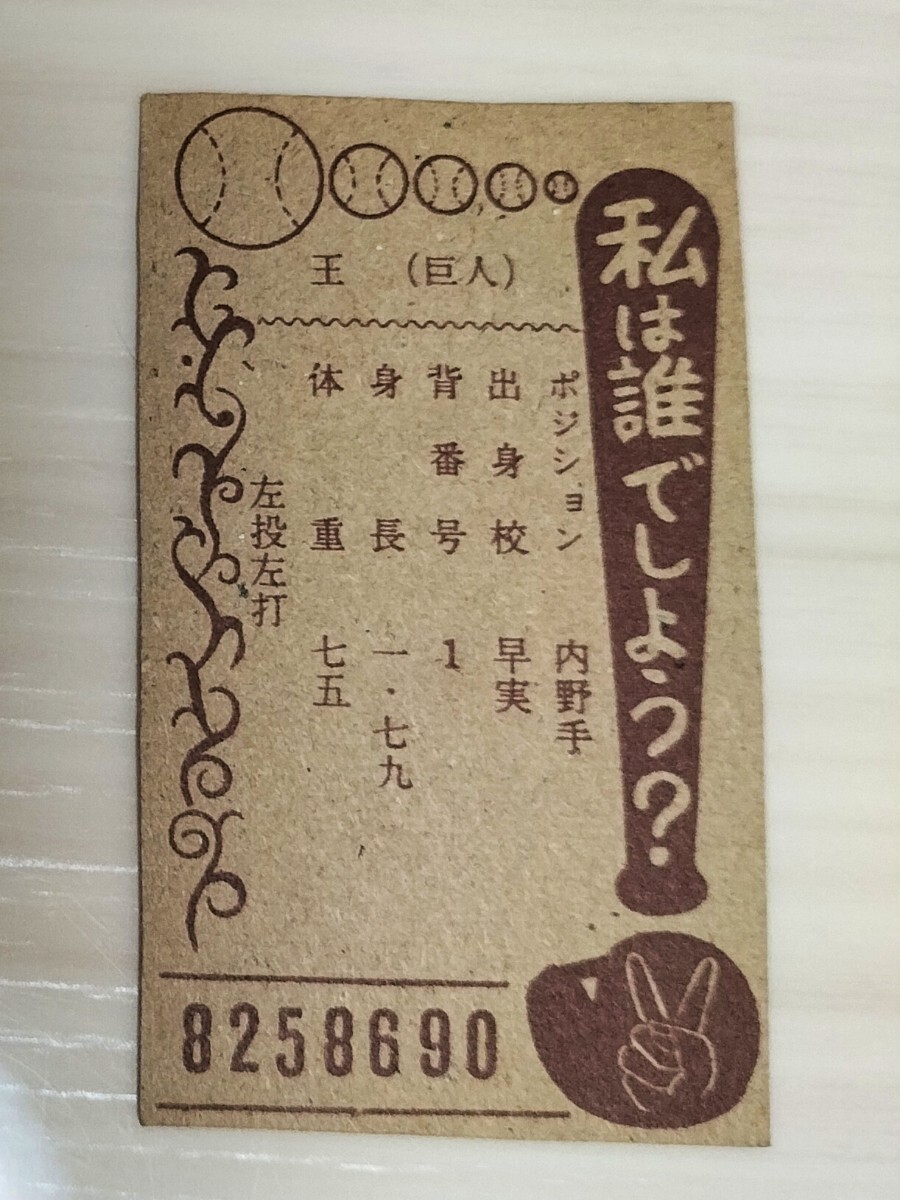 私は誰でしょう?
王 (巨人)
ポジション 内野手
出身校 早実
背番号 1
身長 一・七九
体重 七五
左投左打
8258690